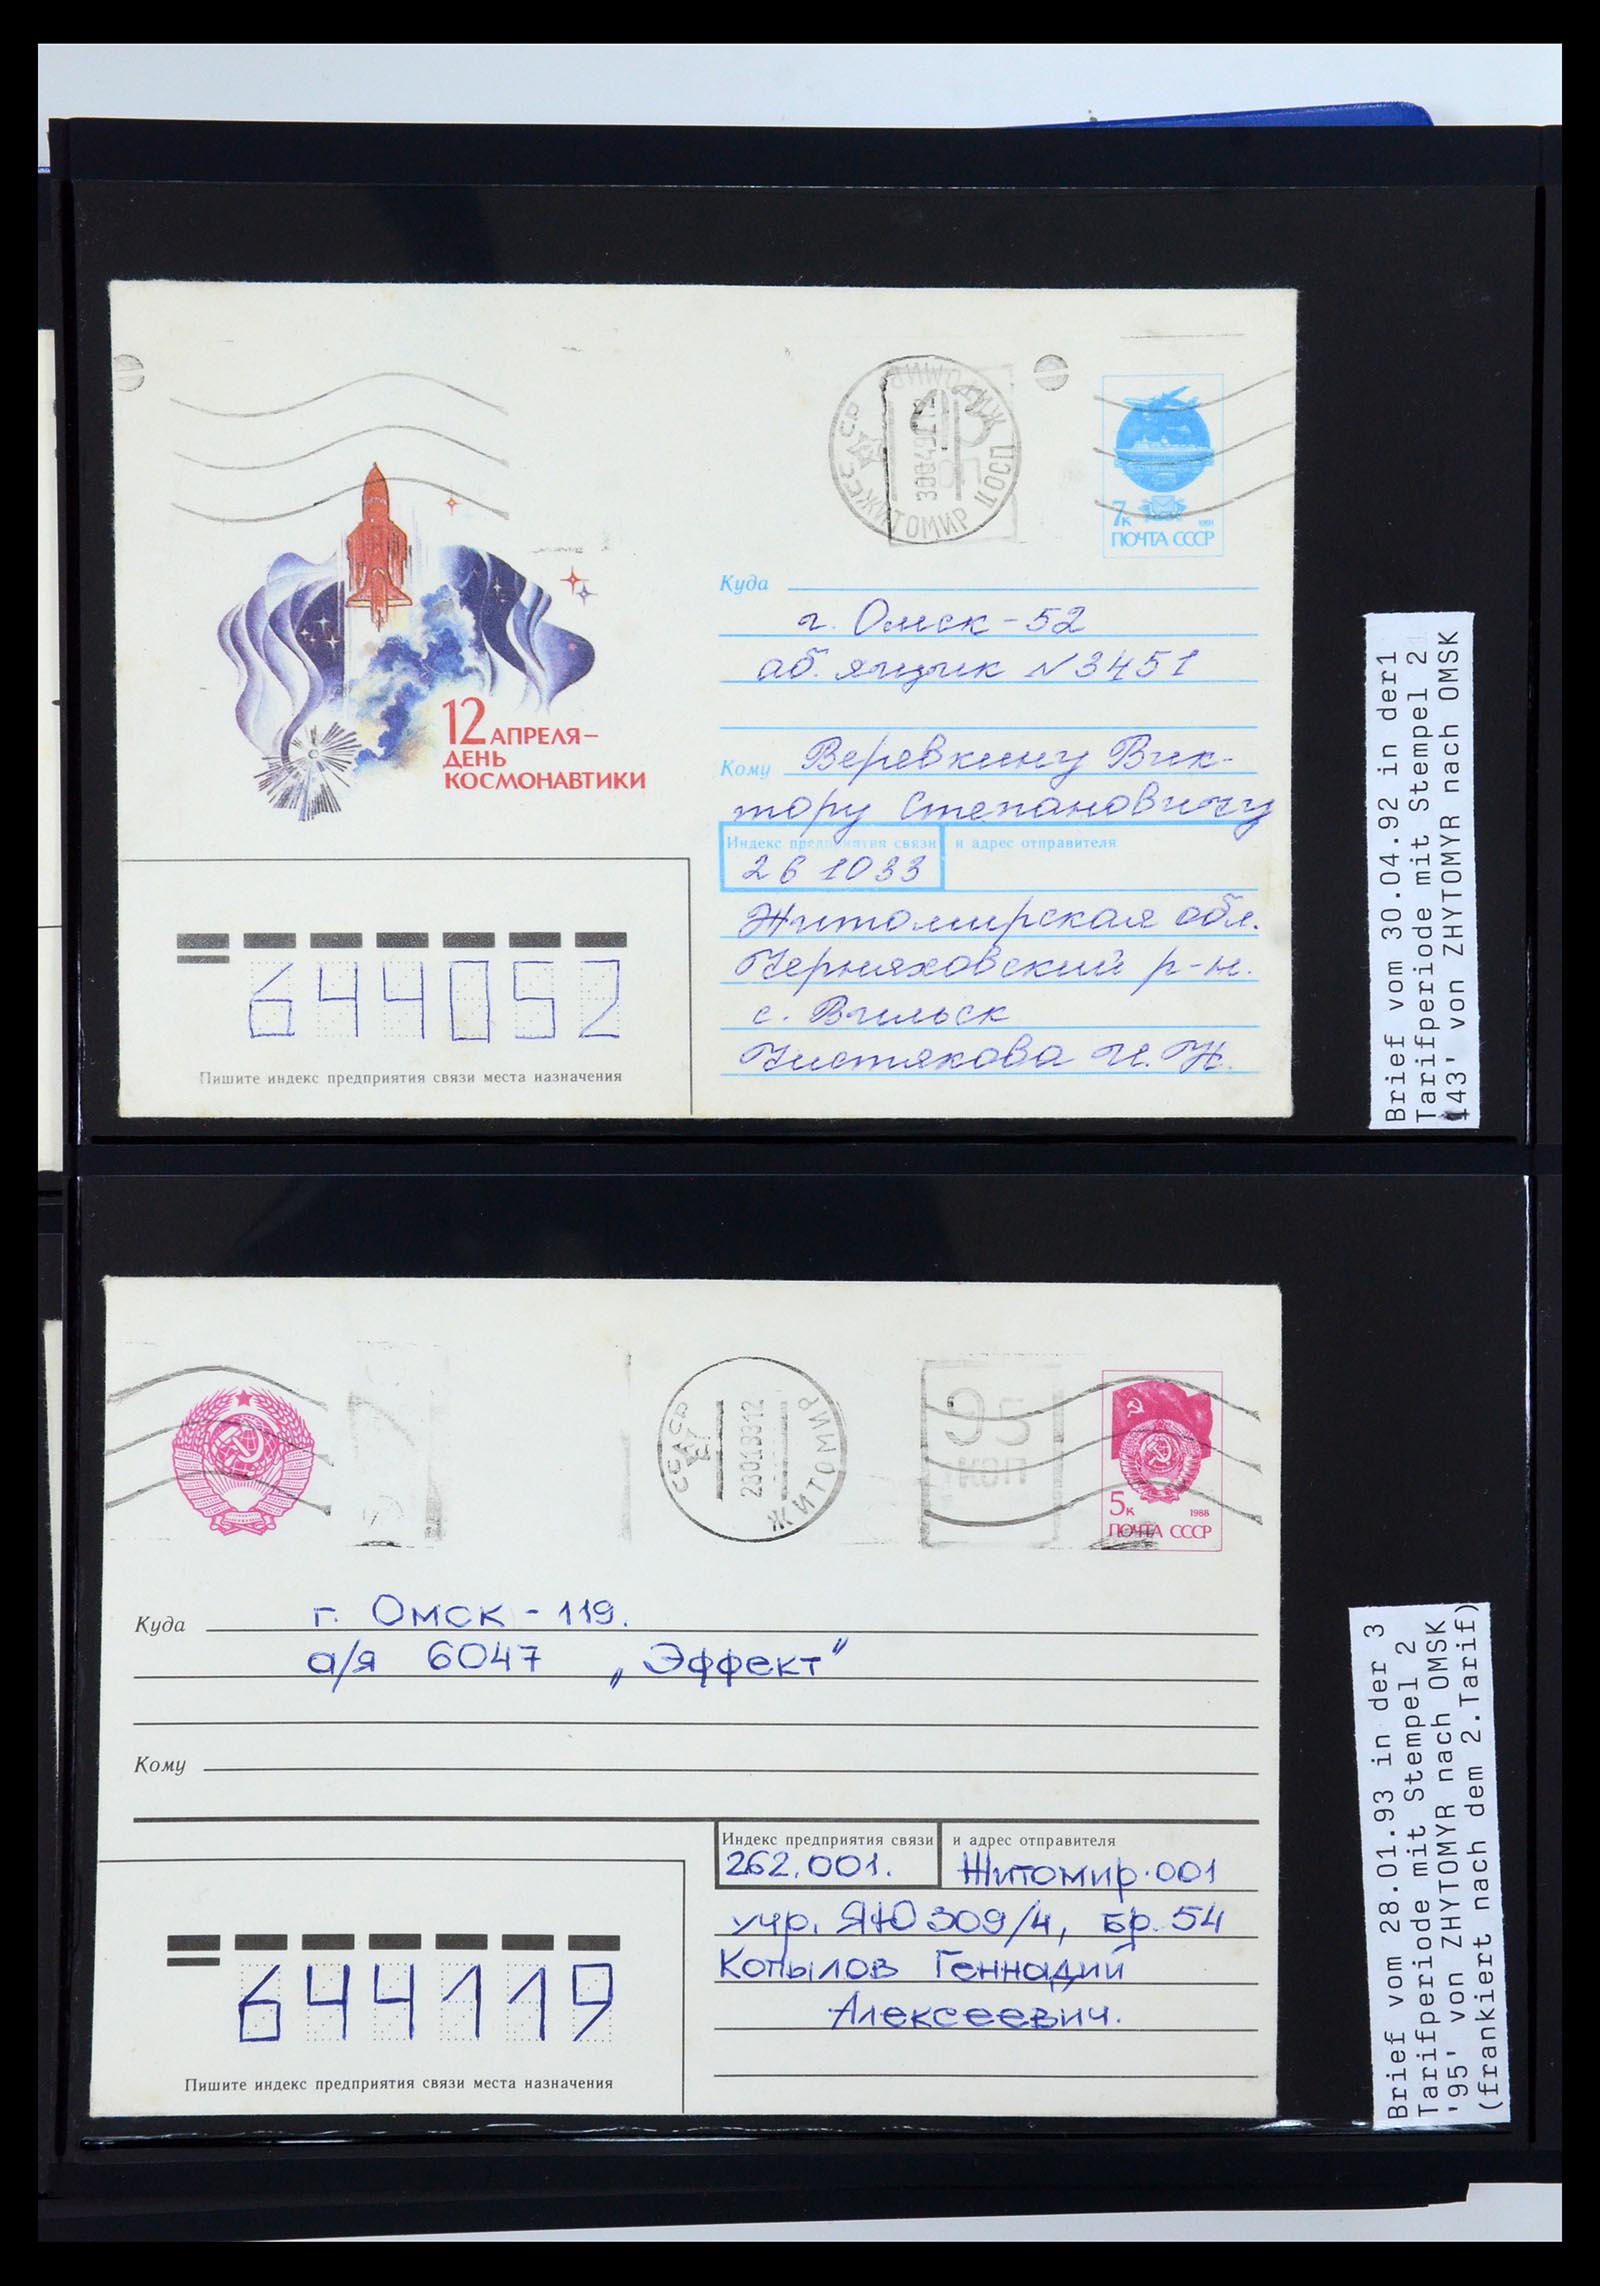 12 АПРЕЛЯ–
ДЕНЬ
КОСМОНАВТИКИ
ЖИТОМИР ЦОСП
7к 1991
ПОЧТА СССР
Куда
г. Омск-52
аб. ящик N3451
Кому Веревкину Вик-
тору Степановичу
Индекс предприятия связи и адрес отправителя
261033
Житомирская обл.
Черняховский р-н.
с. Вильск
Чистякова Н.
644052
Пишите индекс предприятия связи места назначения
Brief vom 30.04.92 in der1
Tarifperiode mit Stempel 2
43' von ZHYTOMYR nach OMSK
СССР
28019312
ЖИТОМИР
95
коп
5к 1988
ПОЧТА СССР
Куда г. Омск - 119.
а/я 6047 „Эффект"
Кому
Индекс предприятия связи и адрес отправителя
262.001. Житомир-001
учр. ЯЮ 309/4, бр. 54
Копылов Геннадий
Алексеевич.
644119
Пишите индекс предприятия связи места назначения
Brief vom 28.01.93 in der 3
Tarifperiode mit Stempel 2
'95' von ZHYTOMYR nach OMSK
(frankiert nach dem 2.Tarif)